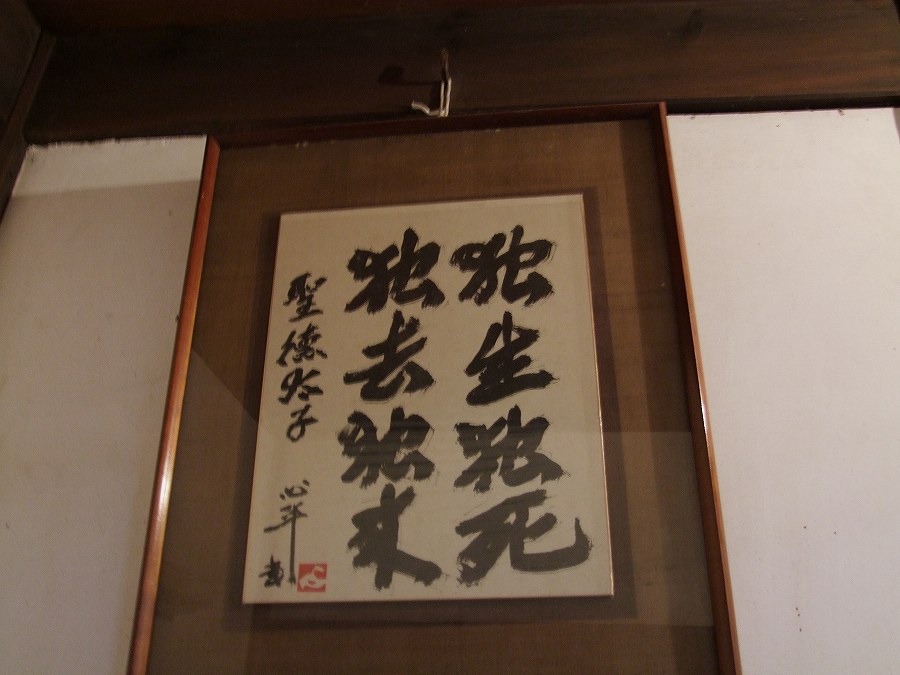 独生独死
独去独来
聖徳太子
心平書